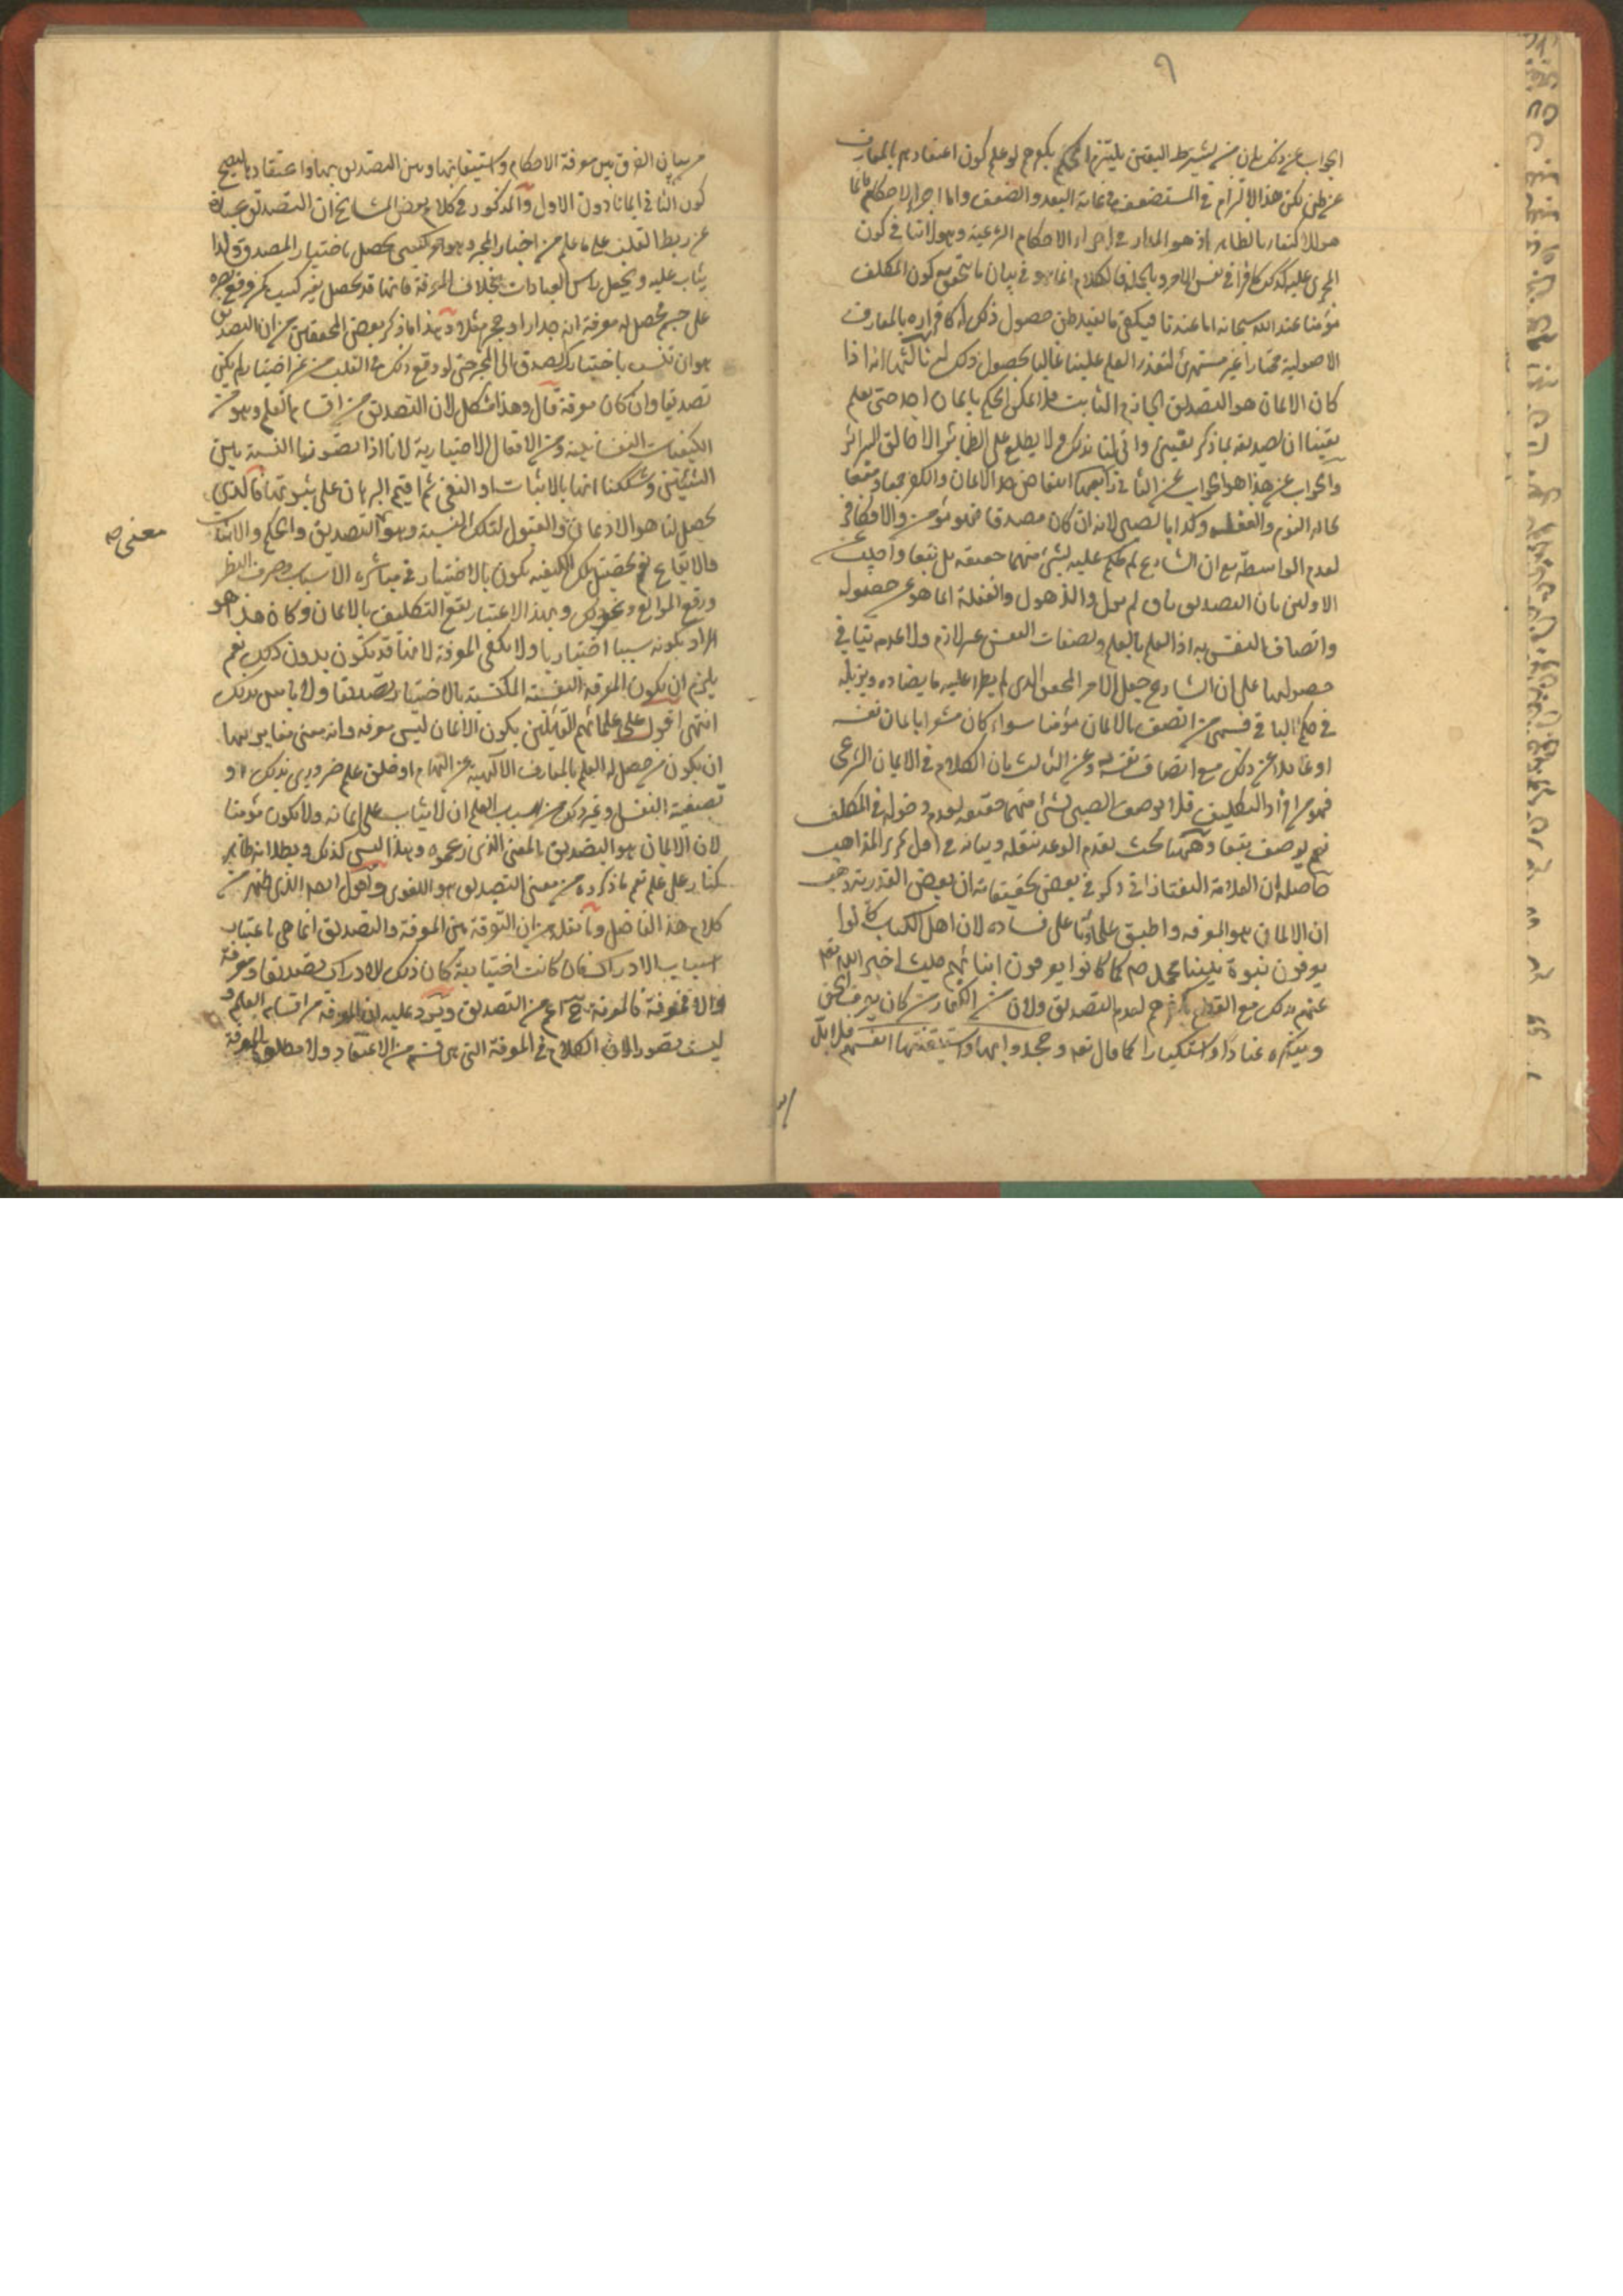 ٩
الجواب عن ذلك بان من يشترط اليقين يلتزم الحكم بكفرهم لو علم كون اعتقادهم بالمعارف
عن ظن لكن هذا الالتزام في المستضعف في غاية البعد والضعف واما اجراء الاحكام فانما
هو للاكتفاء بالظاهر اذ هو المدار في اجراء الاحكام الشرعية وهو لا ينافي كون
المجرى عليه كذلك كافرا في نفس الامر وبالجملة فالكلام انما هو في بيان ما يتحقق به كون المكلف
مؤمنا عند الله سبحانه اما عندنا فيكفي ما يفيد ظن حصول ذلك له كاقراره بالمعارف
الاصولية مختارا غير مستهزئ لتعذر العلم علينا غالبا بحصول ذلك له ثالثها انه اذا
كان الايمان هو التصديق الجازم الثابت فلا يمكن الحكم بايمان احد حتى يعلم
يقينا ان تصديقه بما ذكر يقيني وانى لنا بذلك ولا يطلع على الضمائر الا خالق السرائر
والجواب عن هذا هو الجواب عن الثاني رابعها انتقاض حد الايمان والكفر جمعا ومنعا
بحالة النوم والغفلة وكذا بالصبي لانه ان كان مصدقا فهو مؤمن والا فكافر
لعدم الواسطة مع ان الشارع لم يحكم عليه بشئ منهما حقيقة بل تبعا واجيب عن
الاولين بان التصديق باق لم يزل والذهول والغفلة انما هو عن حصوله
واتصاف النفس به اذ العلم بالعلم وبصفات النفس غير لازم ولا عدمه ينافي
حصولهما على ان الشارع جعل الامر المحقق الذي لم يطرأ عليه ما يضاده ويزيله
في حكم الباقي فسمى من اتصف بالايمان مؤمنا سواء كان مشعرا بايمان نفسه
او غافلا عن ذلك مع اتصاف نفسه به وعن الثالث بان الكلام في الايمان الشرعي
فهو من افراد التكليف فلا يوصف الصبي بشئ منهما حقيقة لعدم دخوله في المكلف
نعم يوصف تبعا وههنا بحث تقدم الوعد بنقله وبيانه في اول تحرير المذاهب
حاصله ان العلامة التفتازاني ذكر في بعض تحقيقاته ان بعض القدرية ذهب
ان الايمان هو المعرفة واطبق علماؤنا على فساده لان اهل الكتاب كانوا
يعرفون نبوة نبينا محمد ص كما كانوا يعرفون ابنائهم حيث اخبر الله تعالى
عنهم بذلك مع القطع بكفرهم لعدم التصديق ولان من الكفار من كان يعرف الحق
وينكره عنادا واستكبارا كما قال تعالى وجحدوا بها واستيقنتها انفسهم فلا بد
من بيان الفرق بين معرفة الاحكام واستيقانها وبين التصديق بها واعتقادها ليصح
كون الثاني ايمانا دون الاول والمذكور في كلام بعض المشايخ ان التصديق عبارة
عن ربط القلب على ما علم من اخبار المخبر وهو امر كسبي يحصل باختيار المصدق ولذا
يثاب عليه ويجعل راس العبادات بخلاف المعرفة فانها قد تحصل بغير كسب كمن وقع بصره
على جسم فحصل له معرفة انه جدار او حجر مثلا وهذا ما ذكر بعض المحققين من ان التصديق
هو ان تنسب باختيارك الصدق الى المخبر حتى لو وقع ذلك في القلب من غير اختيار لم يكن
تصديقا وان كان معرفة قال وهذا مشكل لان التصديق من اقسام العلم وهو من
الكيفيات النفسانية دون الافعال الاختيارية لانا اذا تصورنا النسبة بين
الشيئين وشككنا انها بالاثبات او النفي ثم اقيم البرهان على ثبوتها فالذي
يحصل لنا هو الاذعان والقبول لتلك النسبة وهو معنى التصديق والحكم والاثبات
والايقاع نعم تحصيل تلك الكيفية يكون بالاختيار في مباشرة الاسباب وصرف النظر
ورفع الموانع ونحو ذلك وبهذا الاعتبار يقع التكليف بالايمان وكان هذا هو
المراد بكونه سببا اختياريا ولا يكفي المعرفة لانها قد تكون بدون ذلك نعم
يلزم ان يكون المعرفة اليقينية المكتسبة بالاختيار تصديقا ولا باس بذلك
انتهى اقول على علمائهم القائلين بكون الايمان ليس معرفة وانه معنى مغاير لهما
ان يكون من حصل له العلم بالمعارف الالهية عن الهام او خلق علم ضروري بذلك او
تصفية النفس وغير ذلك من اسباب العلم ان لا يثاب على ايمانه ولا يكون مؤمنا
لان الايمان هو التصديق بالمعنى الذي زعموه وهذا ليس كذلك وبطلانه ظاهر
كنار على علم نعم ما ذكروه من معنى التصديق هو اللغوي واقول ايضا الذي ظهر من
كلام هذا الفاضل وما نقله من ان التفرقة بين المعرفة والتصديق انما هي باعتبار
اسباب الادراك فان كانت اختيارية كان ذلك الادراك تصديقا ومعرفة
والا فمعرفة فالمعرفة ح اعم من التصديق ويرد عليه ان المعرفة من اقسام العلم و
ليست تصورا لان الكلام في المعرفة التي هي قسم من الاعتقاد ولا مطلق المعرفة
معنى ص